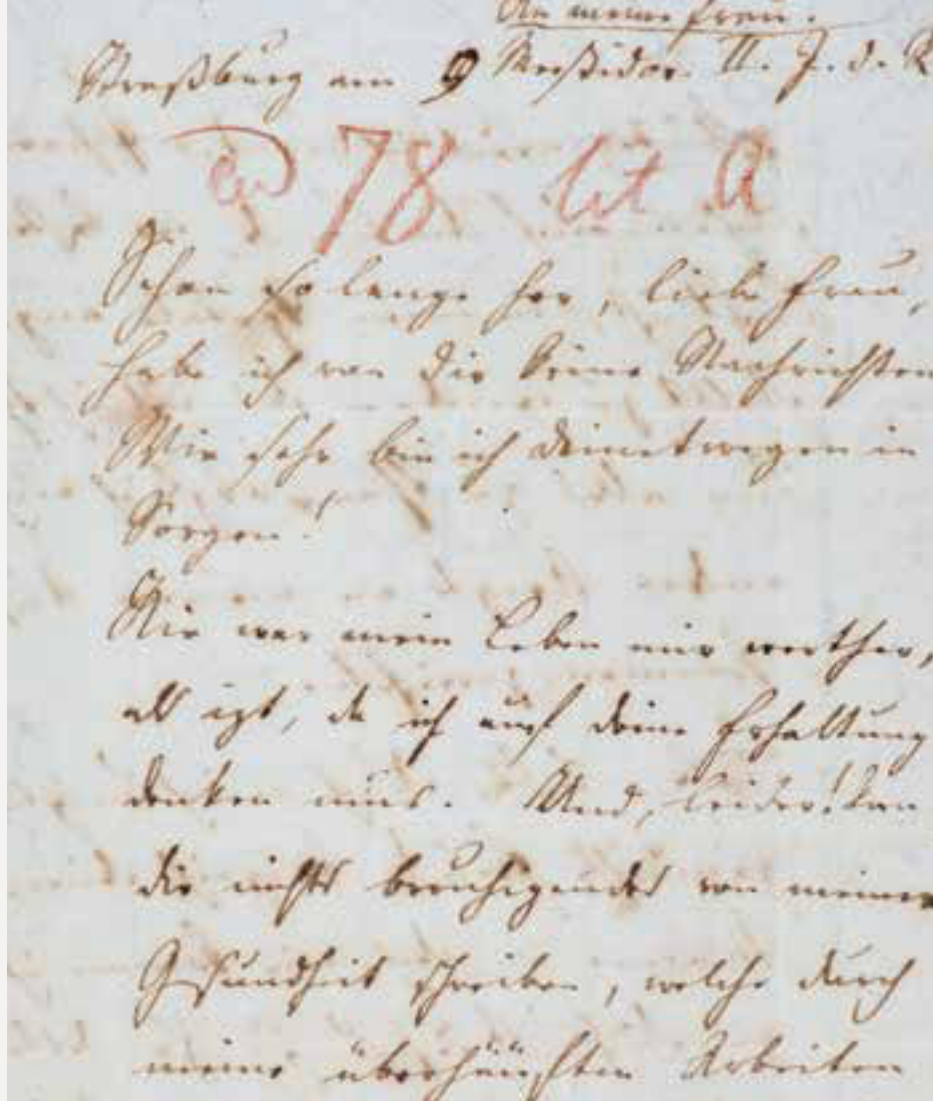 An meine Frau.
Straßburg am 9 Meßidor. II. J. d. R
78 lit A
Schon so lange her, liebe Frau,
habe ich von dir keine Nachrichten
Wie sehr bin ich deinetwegen in
Sorgen!
Nie war mein Leben mir werther,
als izt, da ich auf deine Erhaltung
denken mus. Und, leider! kan
dir nichts beruhigendes von meiner
Gesundheit schreiben, welche durch
meine überhäuften Arbeiten